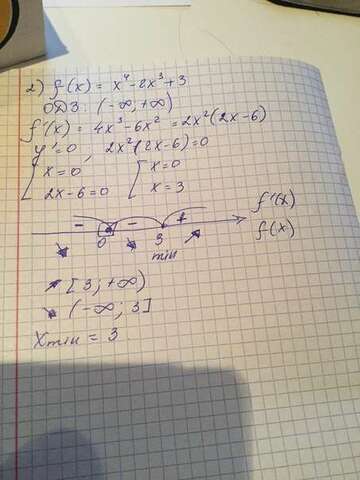 2) f(x) = x⁴-2x³+3
ОДЗ: (-∞,+∞)
f'(x) = 4x³-6x² = 2x²(2x-6)
y'=0, 2x²(2x-6)=0
[ x=0, [ x=0
2x-6=0 x=3
- - + f'(x)
0 3 f(x)
↘ ↘ min ↗
↗ [3; +∞)
↘ (-∞; 3]
Xmin = 3